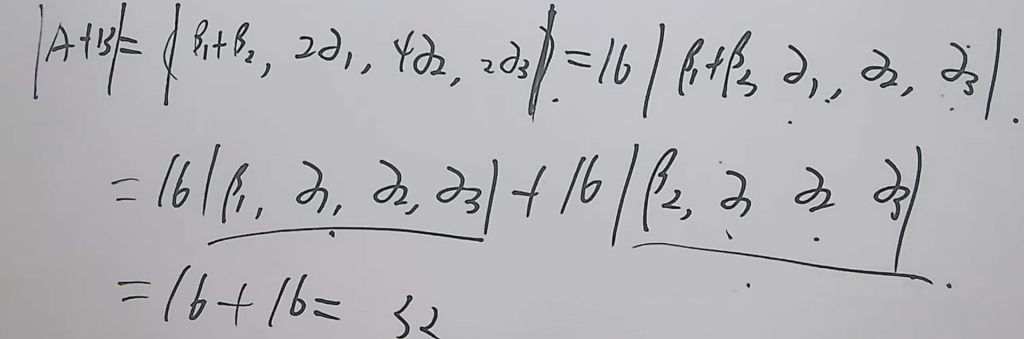 |A+B|=|β₁+β₂, 2∂₁, 4∂₂, 2∂₃|=16|β₁+β₂ ∂₁, ∂₂, ∂₃|.
=16|β₁, ∂₁, ∂₂, ∂₃|+16|β₂, ∂₁ ∂₂ ∂₃|
=16+16= 32